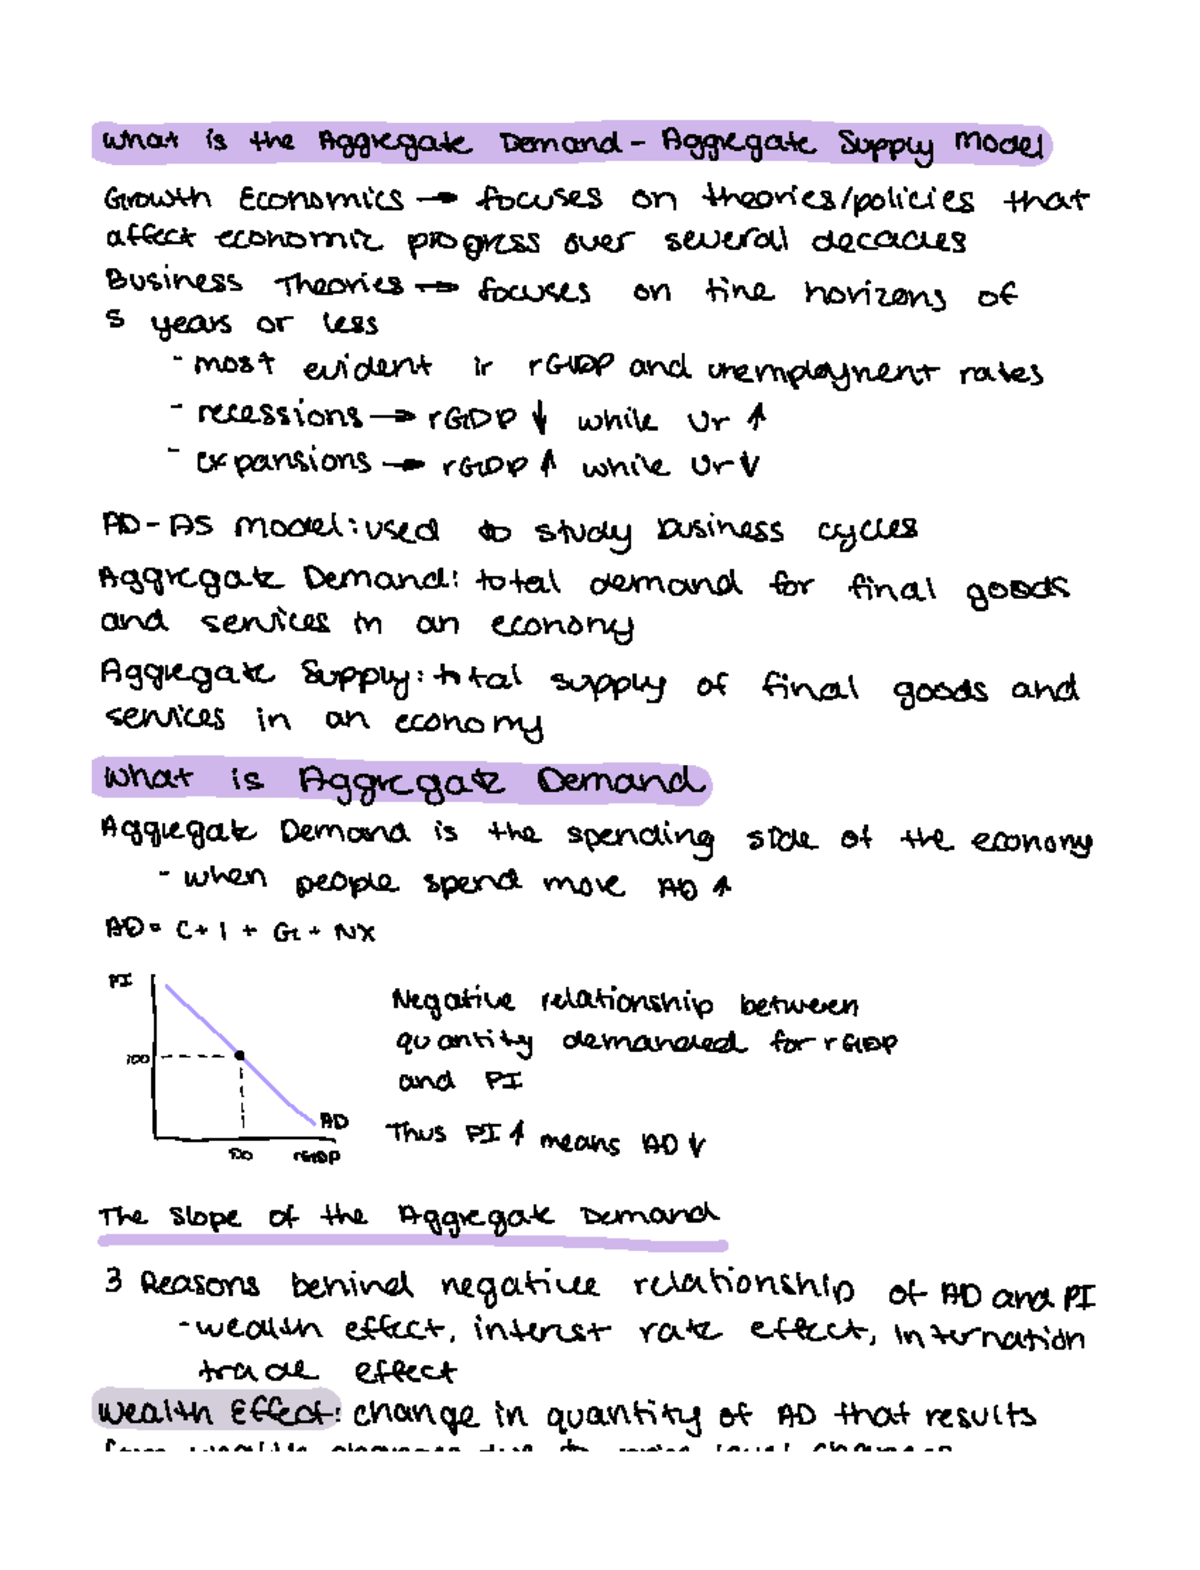 What is the Aggregate Demand - Aggregate Supply Model
Growth Economics → focuses on theories/policies that
affect economic progress over several decades
Business Theories → focuses on time horizons of
5 years or less
- most evident in rGDP and unemployment rates
- recessions → rGDP ↓ while Ur ↑
- expansions → rGDP ↑ while Ur ↓
AD-AS model: used to study business cycles
Aggregate Demand: total demand for final goods
and services in an economy
Aggregate Supply: total supply of final goods and
services in an economy
What is Aggregate Demand
Aggregate Demand is the spending side of the economy
- when people spend more AD ↑
AD = C + I + G + NX
PI
100
AD
rGDP
Negative relationship between
quantity demanded for rGDP
and PI
Thus PI ↑ means AD ↓
The Slope of the Aggregate Demand
3 Reasons behind negative relationship of AD and PI
- wealth effect, interest rate effect, internation
trade effect
Wealth Effect: change in quantity of AD that results